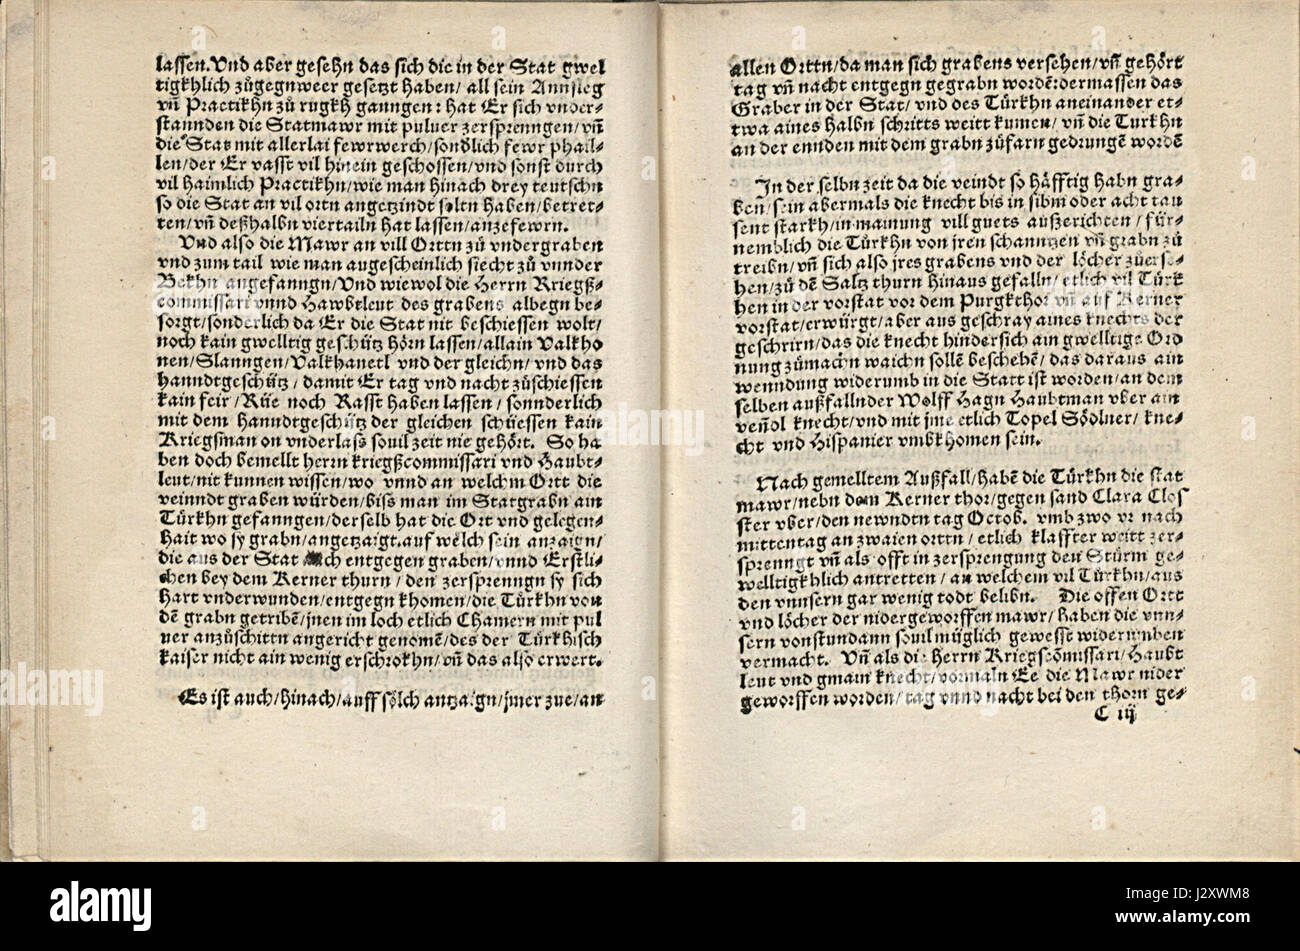 lassen. Vnd aber gesehn das sich die in der Stat gwel
tigkhlich zůgegnweer gesetzt haben/ all sein Annsleg
vñ Practikhn zů rugkh ganngen: hat Er sich vnder-
stannden die Statmawr mit puluer zersprenngen/ vñ
die Stat mit allerlai fewrwerch/ sondlich fewr phail-
len/ der Er vasst vil hinein geschossen/ vnd sonst durch
vil haimlich Practikhn/ wie man hinach drey teutschn
so die Stat an vil ortn angetzindt soltn haben/ betret-
ten/ vñ deßhalbn viertailn hat lassen/ anzefewrn.
Vnd also die Mawr an vill Orttn zů vndergraben
vnd zum tail wie man augescheinlich siecht zů vnnder
angefanngn/ Vnd wiewol die Herrn Kriegß-
commissari vnnd Hawbtleut des grabens albegn be-
sorgt/ sonderlich da Er die Stat nit beschiessen wolt/
noch kain gwelltig geschütz hörn lassen/ allain Valkho
nen/ Slanngen/ Valkhanetl vnd der gleichn/ vnd das
hanndtgeschütz/ damit Er tag vnd nacht zůschiessen
kain feir/ Růe noch Rasst haben lassen/ sonnderlich
mit dem Hanndtgeschütz der gleichen schüessen kain
Kriegsman on vnderlass souil zeit nie gehört. So ha
ben doch bemellt herrn kriegßcommissari vnd Haubt-
leut/ nit kunnen wissen/ wo vnnd an welchm Ortt die
veinndt graben würden/ biss man im Statgrabn ain
Türkhn gefanngen/ der selb hat die Ort vnd gelegen-
hait wo sy grabn/ angetzaigt. auf wëlch sein anzaign/
die aus der Stat entgegen graben/ vnnd Erstli-
chen bey dem Kerner thurn/ den zersprenngn sy sich
Hart vnderwunden/ entgegn khomen/ die Türkhn von
dē grabn getribē/ jnen im loch etlich Chamern mit pul
uer anzůschittn angericht genomē/ des der Türkhisch
kaiser nicht ain wenig erschrokhn/ vñ das also erwert.
Es ist auch/ hinach/ auff sölch antzaign/ jmer zue/ an
allen Orttn/ da man sich grabens versehen/ vñ gehört
tag vñ nacht entgegn gegrabn wordē: dermassen das
Graber in der Stat/ vnd des Türkhn aneinander et-
twa aines halbn schritts weitt kumen/ vñ die Turkhn
an der ennden mit dem grabn zůsarn gedrungē wordē
In der selbn zeit da die veindt so häfftig habn gra-
ben/ sein abermals die knecht bis in sibm oder acht tau
sent starkh/ in mainung vill guets außzerichten/ für-
nemblich die Türkhn von jren schanntzen vñ grabn zů
treibn/ vñ sich also jres grabens vnd der löcher zůerse-
hen/ zů dē Saltz thurn hinaus gefalln/ etlich vil Türk
hen in der vorstat vor dem Purgkthor vñ auf Kerner
vorstat/ erwürgt/ aber aus geschray aines knechts der
geschrirn/ das die knecht hindersich ain gwelltige Ord
nung zůmachn waichn sollē beschehē/ das daraus ain
wenndung widerumb in die Statt ist worden/ an dem
selben außfallnder Wolff Hagn Haubtman vber ain
venñol knecht/ vnd mit jme etlich Topel Söolner/ kne-
cht vnd Hispanier vmbkhomen sein.
Nach gemelltem Außfall/ habē die Türkhn die stat
mawr/ nebn dem Kerner thor/ gegen sand Clara Clos
ster vber/ den newndtn tag Octob. vmb zwo vr nach
mittentag an zwaien orttn/ etlich klaffter weitt zer-
sprenngt vñ als offt in zersprengung den Sturm ge-
welltigkhlich antretten/ an welchem vil Türkhn/ aus
den vnnsern gar wenig todt belibn. Die offen Ortt
vnd löcher der nidergeworffen mawr/ haben die vnn-
sern vonstundann souil müglich gewesst widerumben
vermacht. Vñ als die Herrn Kriegscōmissari/ Haubt
leut vnd gmain knecht/ vormaln Ee die Mawr nider
geworffen worden/ tag vnnd nacht bei den thorn ge-
C iij
alamy
alamy
alamy
alamy stock photo
J2XWM8
www.alamy.com